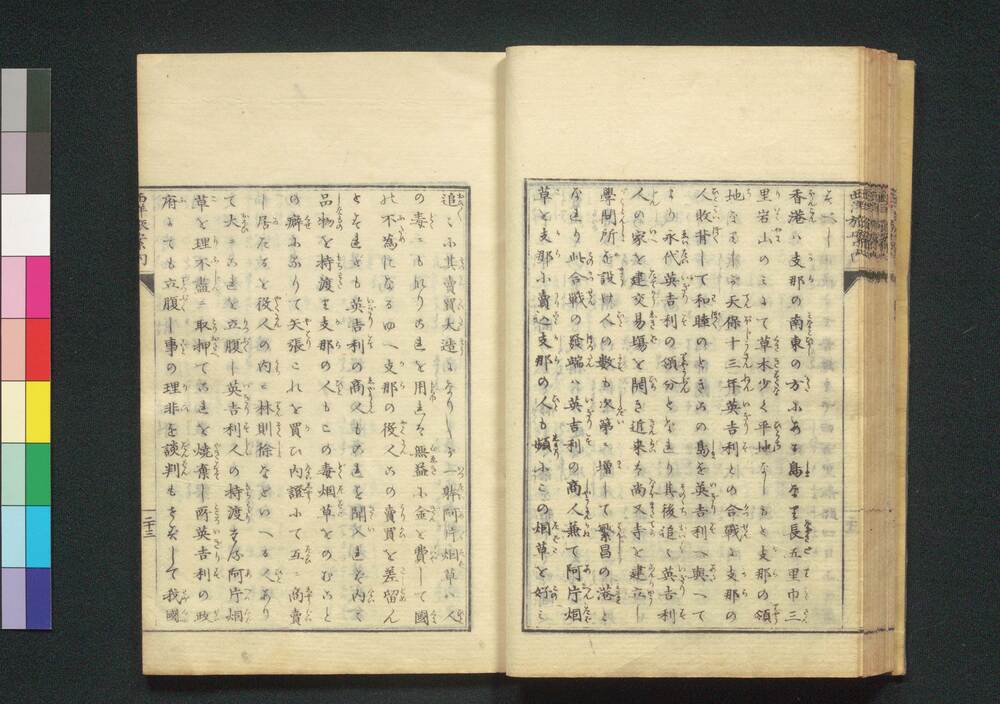 西洋旅案内
香港ハ支那の南東の方にある島なり長五里巾三
里岩山のミにて草木少く平地なしもと支那の領
地なりしが天保十三年英吉利との合戦に支那の
人敗背して和睦のときこの島を英吉利へ與へて
より永代英吉利の領分となれり其後追々英吉利
人の家を建交易場を開き近来ハ尚又寺を建立し
學問所を設け人の數も次第に増して繁昌の港と
なれり此合戦の發端ハ英吉利の商人兼て阿片烟
草を支那に賣込支那の人も頻にこの烟草を好ミ
追々に其賣買大造になりしが一躰阿片烟草ハ人
の毒にもなりこれを用れハ無益に金を費して國
の不為になるゆへ支那の役人この賣買を差留ん
とすれとも英吉利の商人もこれを聞入れず内々
品物を持渡り支那の人もこの毒烟草をのむこと
の癖になりて矢張これを買ひ内證にて互に商賣
し居たるを役人の内に林則徐なといへる人あり
て大にこれを立腹し英吉利人の持渡たる阿片烟
草を理不盡に取押てこれを燒棄し所英吉利の政
府にても立腹し事の理非を談判もせずして我國
西洋旅案内
二十三